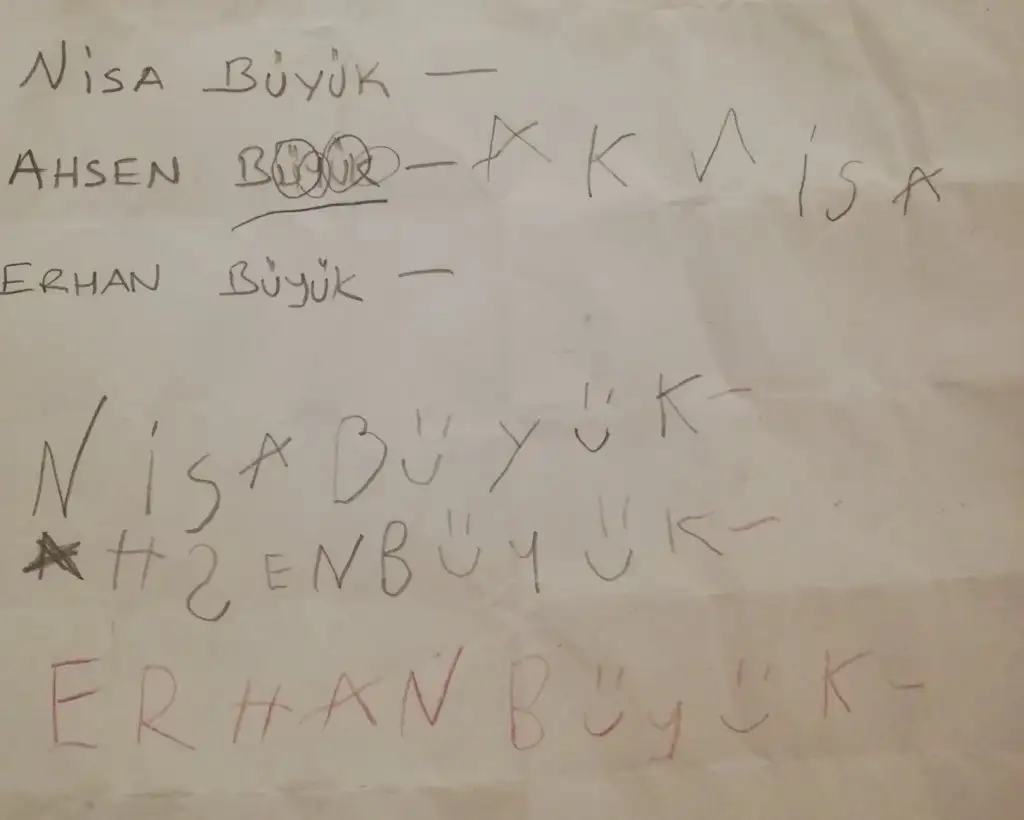 NİSA BÜYÜK —
AHSEN BÜYÜK — A K N İSA
ERHAN BÜYÜK —
NİSA BÜYÜK —
AHSEN BÜYÜK —
ERHAN BÜYÜK —